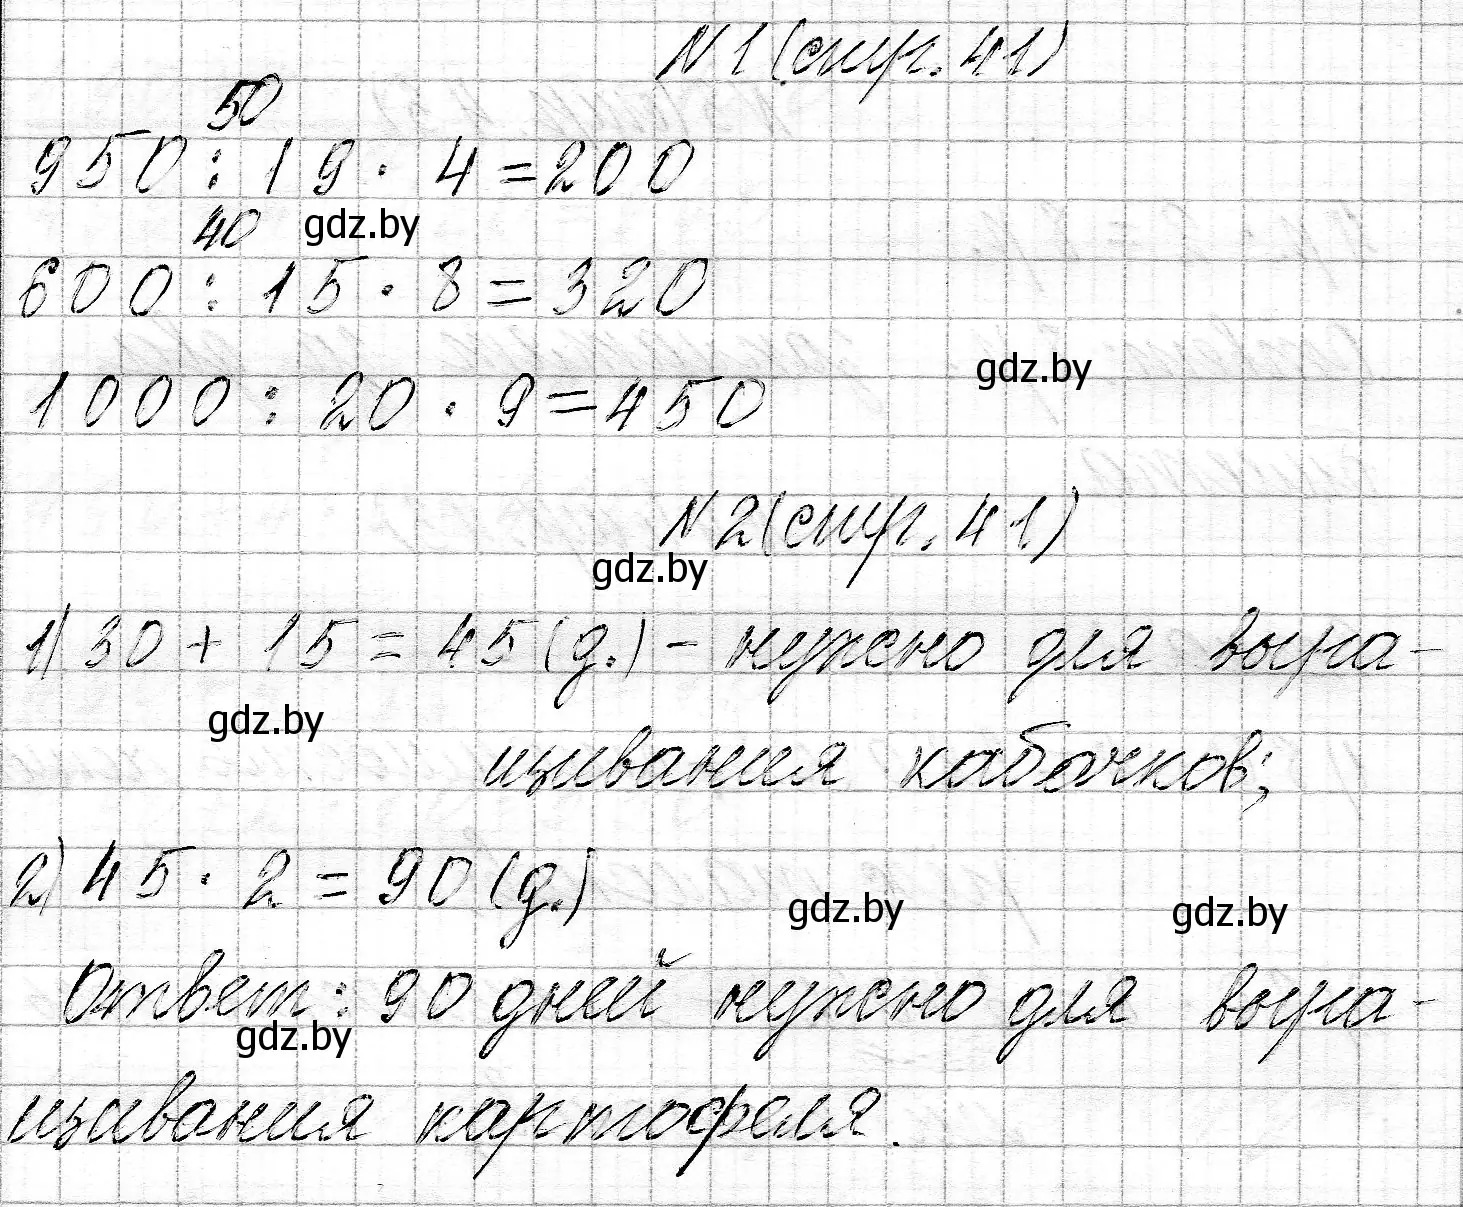 N 1 (стр. 41)
50
950 : 19 · 4 = 200
40
gdz.by
600 : 15 · 8 = 320
gdz.by
1000 : 20 · 9 = 450
N 2 (стр. 41)
gdz.by
1) 30 + 15 = 45 (д.) - нужно для выра-
gdz.by
щивания кабачков;
2) 45 · 2 = 90 (д.)
gdz.by
gdz.by
Ответ: 90 дней нужно для выра-
gdz.by
щивания картофеля.